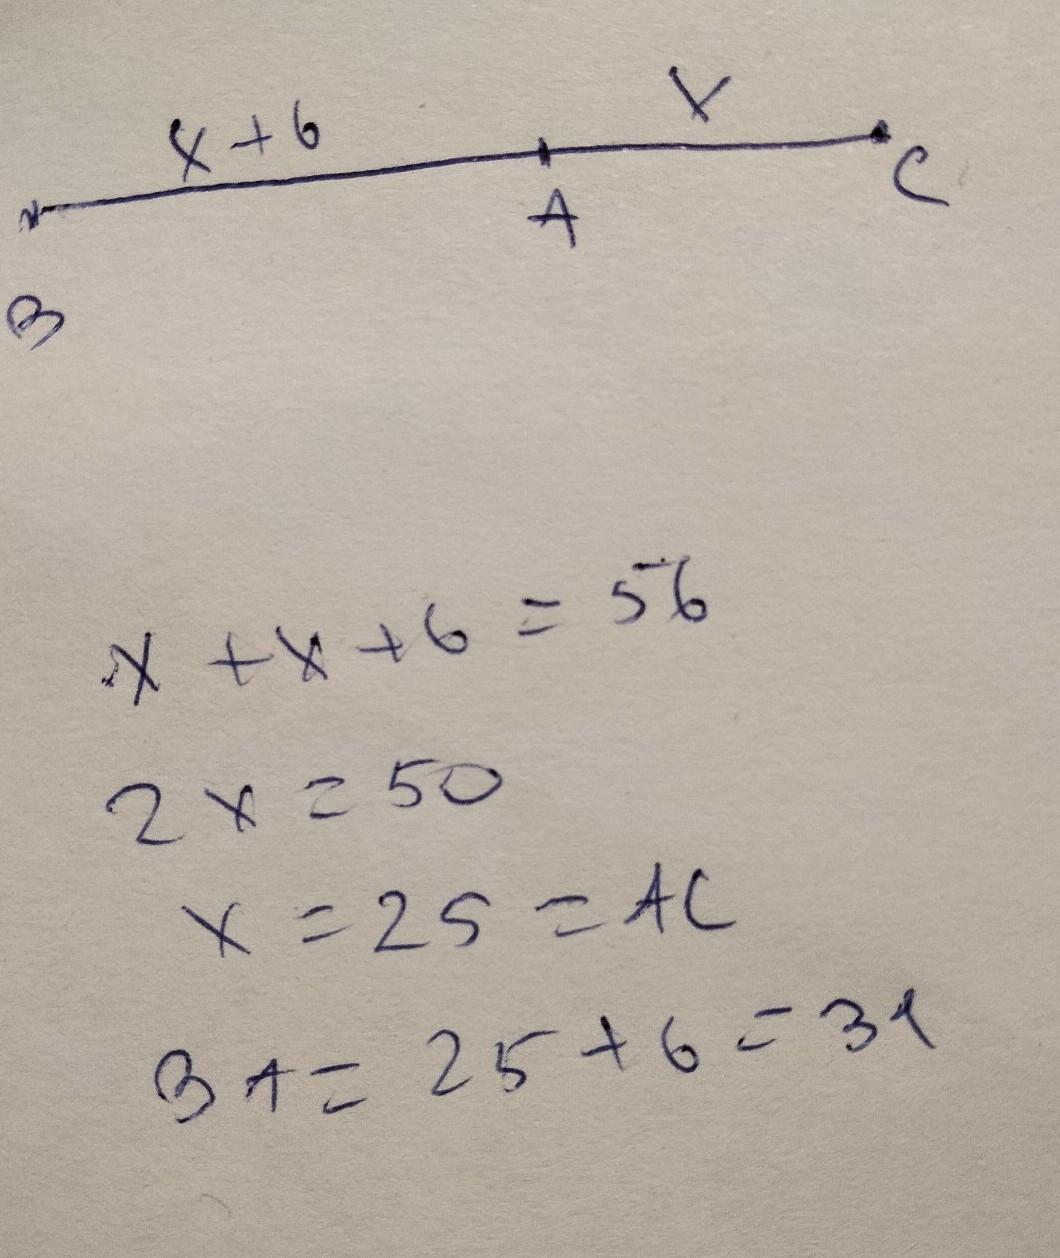 x + 6
x
A
C
B
x + x + 6 = 56
2x = 50
x = 25 = AC
BA = 25 + 6 = 31